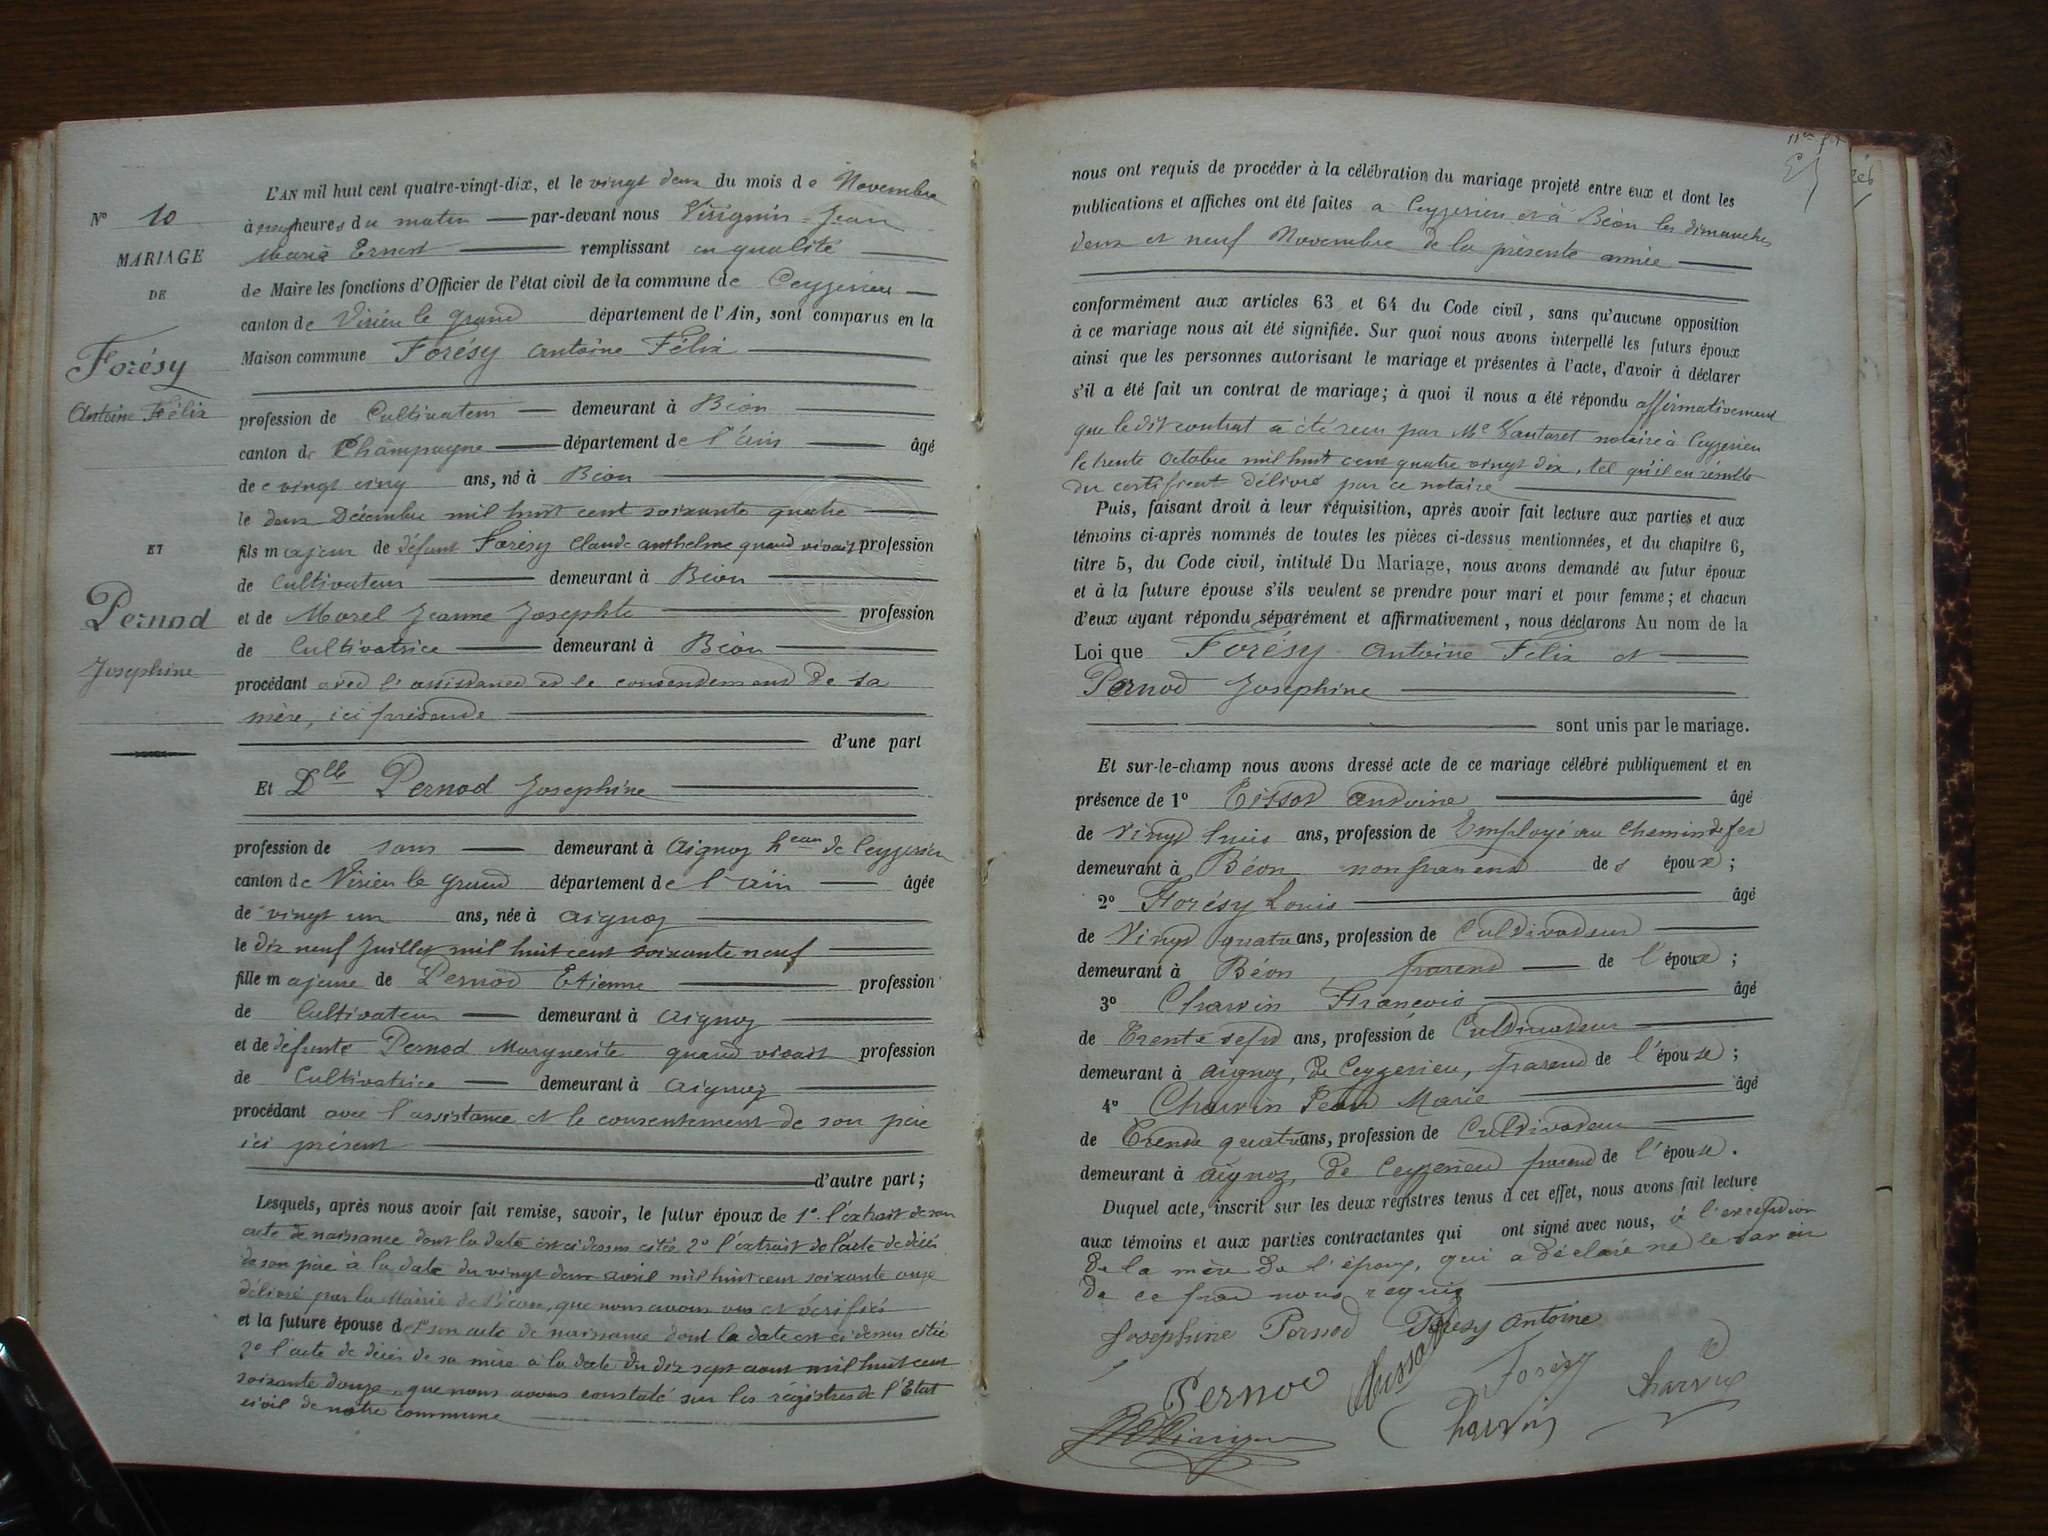 N° 10
MARIAGE
DE
Forésy
Antoine Félix
ET
Pernod
Josephine
L'AN mil huit cent quatre-vingt-dix, et le vingt deux du mois de Novembre
à neuf heures du matin par-devant nous Virignin Jean
Marie Ernest remplissant en qualité
de Maire les fonctions d'Officier de l'état civil de la commune de Ceyzerieu
canton de Virieu le Grand département de l'Ain, sont comparus en la
Maison commune Forésy Antoine Félix
profession de Cultivateur demeurant à Béon
canton de Champagne département de l'Ain âgé
de vingt cinq ans, né à Béon
le deux Décembre mil huit cent soixante quatre
fils majeur de défunt Forésy Claude anthelme quand vivait profession
de Cultivateur demeurant à Béon
et de Morel Jeanne Josephte profession
de Cultivatrice demeurant à Béon
procédant avec l'assistance et le consentement de sa
mère, ici présente
d'une part
Et Dlle Pernod Josephine
profession de sans demeurant à Aignoz heau de Ceyzerieu
canton de Virieu le Grand département de l'Ain âgée
de vingt un ans, née à Aignoz
le dix neuf Juillet mil huit cent soixante neuf
fille majeure de Pernod Etienne profession
de Cultivateur demeurant à Aignoz
et de défunte Pernod Marguerite quand vivait profession
de Cultivatrice demeurant à Aignoz
procédant avec l'assistance et le consentement de son père
ici présent
d'autre part;
Lesquels, après nous avoir fait remise, savoir, le futur époux de 1° l'extrait de son
acte de naissance dont la date est ci dessus citée 2° l'extrait de l'acte de décès
de son père à la date du vingt deux avril mil huit cent soixante onze
délivré par la Mairie de Béon, que nous avons vus et vérifiés
et la future épouse de 1° son acte de naissance dont la date est ci dessus citée
2° l'acte de décès de sa mère à la date du dix sept aout mil huit cent
soixante douze, que nous avons constaté sur les régistres de l'Etat
civil de notre commune
nous ont requis de procéder à la célébration du mariage projeté entre eux et dont les
publications et affiches ont été faites à Ceyzerieu et à Béon les dimanches
deux et neuf Novembre de la présente année
conformément aux articles 63 et 64 du Code civil, sans qu'aucune opposition
à ce mariage nous ait été signifiée. Sur quoi nous avons interpellé les futurs époux
ainsi que les personnes autorisant le mariage et présentes à l'acte, d'avoir à déclarer
s'il a été fait un contrat de mariage; à quoi il nous a été répondu affirmativement
que le dit contrat a été reçu par Me Vantaret notaire à Ceyzerieu
le trente Octobre mil huit cent quatre vingt dix, tel qu'il en résulte
du certificat délivré par ce notaire
Puis, faisant droit à leur réquisition, après avoir fait lecture aux parties et aux
témoins ci-après nommés de toutes les pièces ci-dessus mentionnées, et du chapitre 6,
titre 5, du Code civil, intitulé Du Mariage, nous avons demandé au futur époux
et à la future épouse s'ils veulent se prendre pour mari et pour femme; et chacun
d'eux ayant répondu séparément et affirmativement, nous déclarons Au nom de la
Loi que Forésy Antoine Félix et
Pernod Josephine
sont unis par le mariage.
Et sur-le-champ nous avons dressé acte de ce mariage célébré publiquement et en
présence de 1° Tissot Antoine âgé
de Vingt huit ans, profession de Employé au Chemin de fer
demeurant à Béon non parent des époux;
2° Forésy Louis âgé
de Vingt quatre ans, profession de Cultivateur
demeurant à Béon, parent de l'époux;
3° Charvin François âgé
de Trente sept ans, profession de Cultivateur
demeurant à Aignoz, de Ceyzerieu, parent de l'épouse;
4° Charvin Jean Marie âgé
de Trente quatre ans, profession de Cultivateur
demeurant à Aignoz, de Ceyzerieu parent de l'épouse.
Duquel acte, inscrit sur les deux registres tenus à cet effet, nous avons fait lecture
aux témoins et aux parties contractantes qui ont signé avec nous, à l'exception
de la mère de l'époux, qui a déclaré ne le savoir
de ce faire nous requis
Josephine Pernod Foresy Antoine
Pernod Tissot Forésy Charvin
Charvin